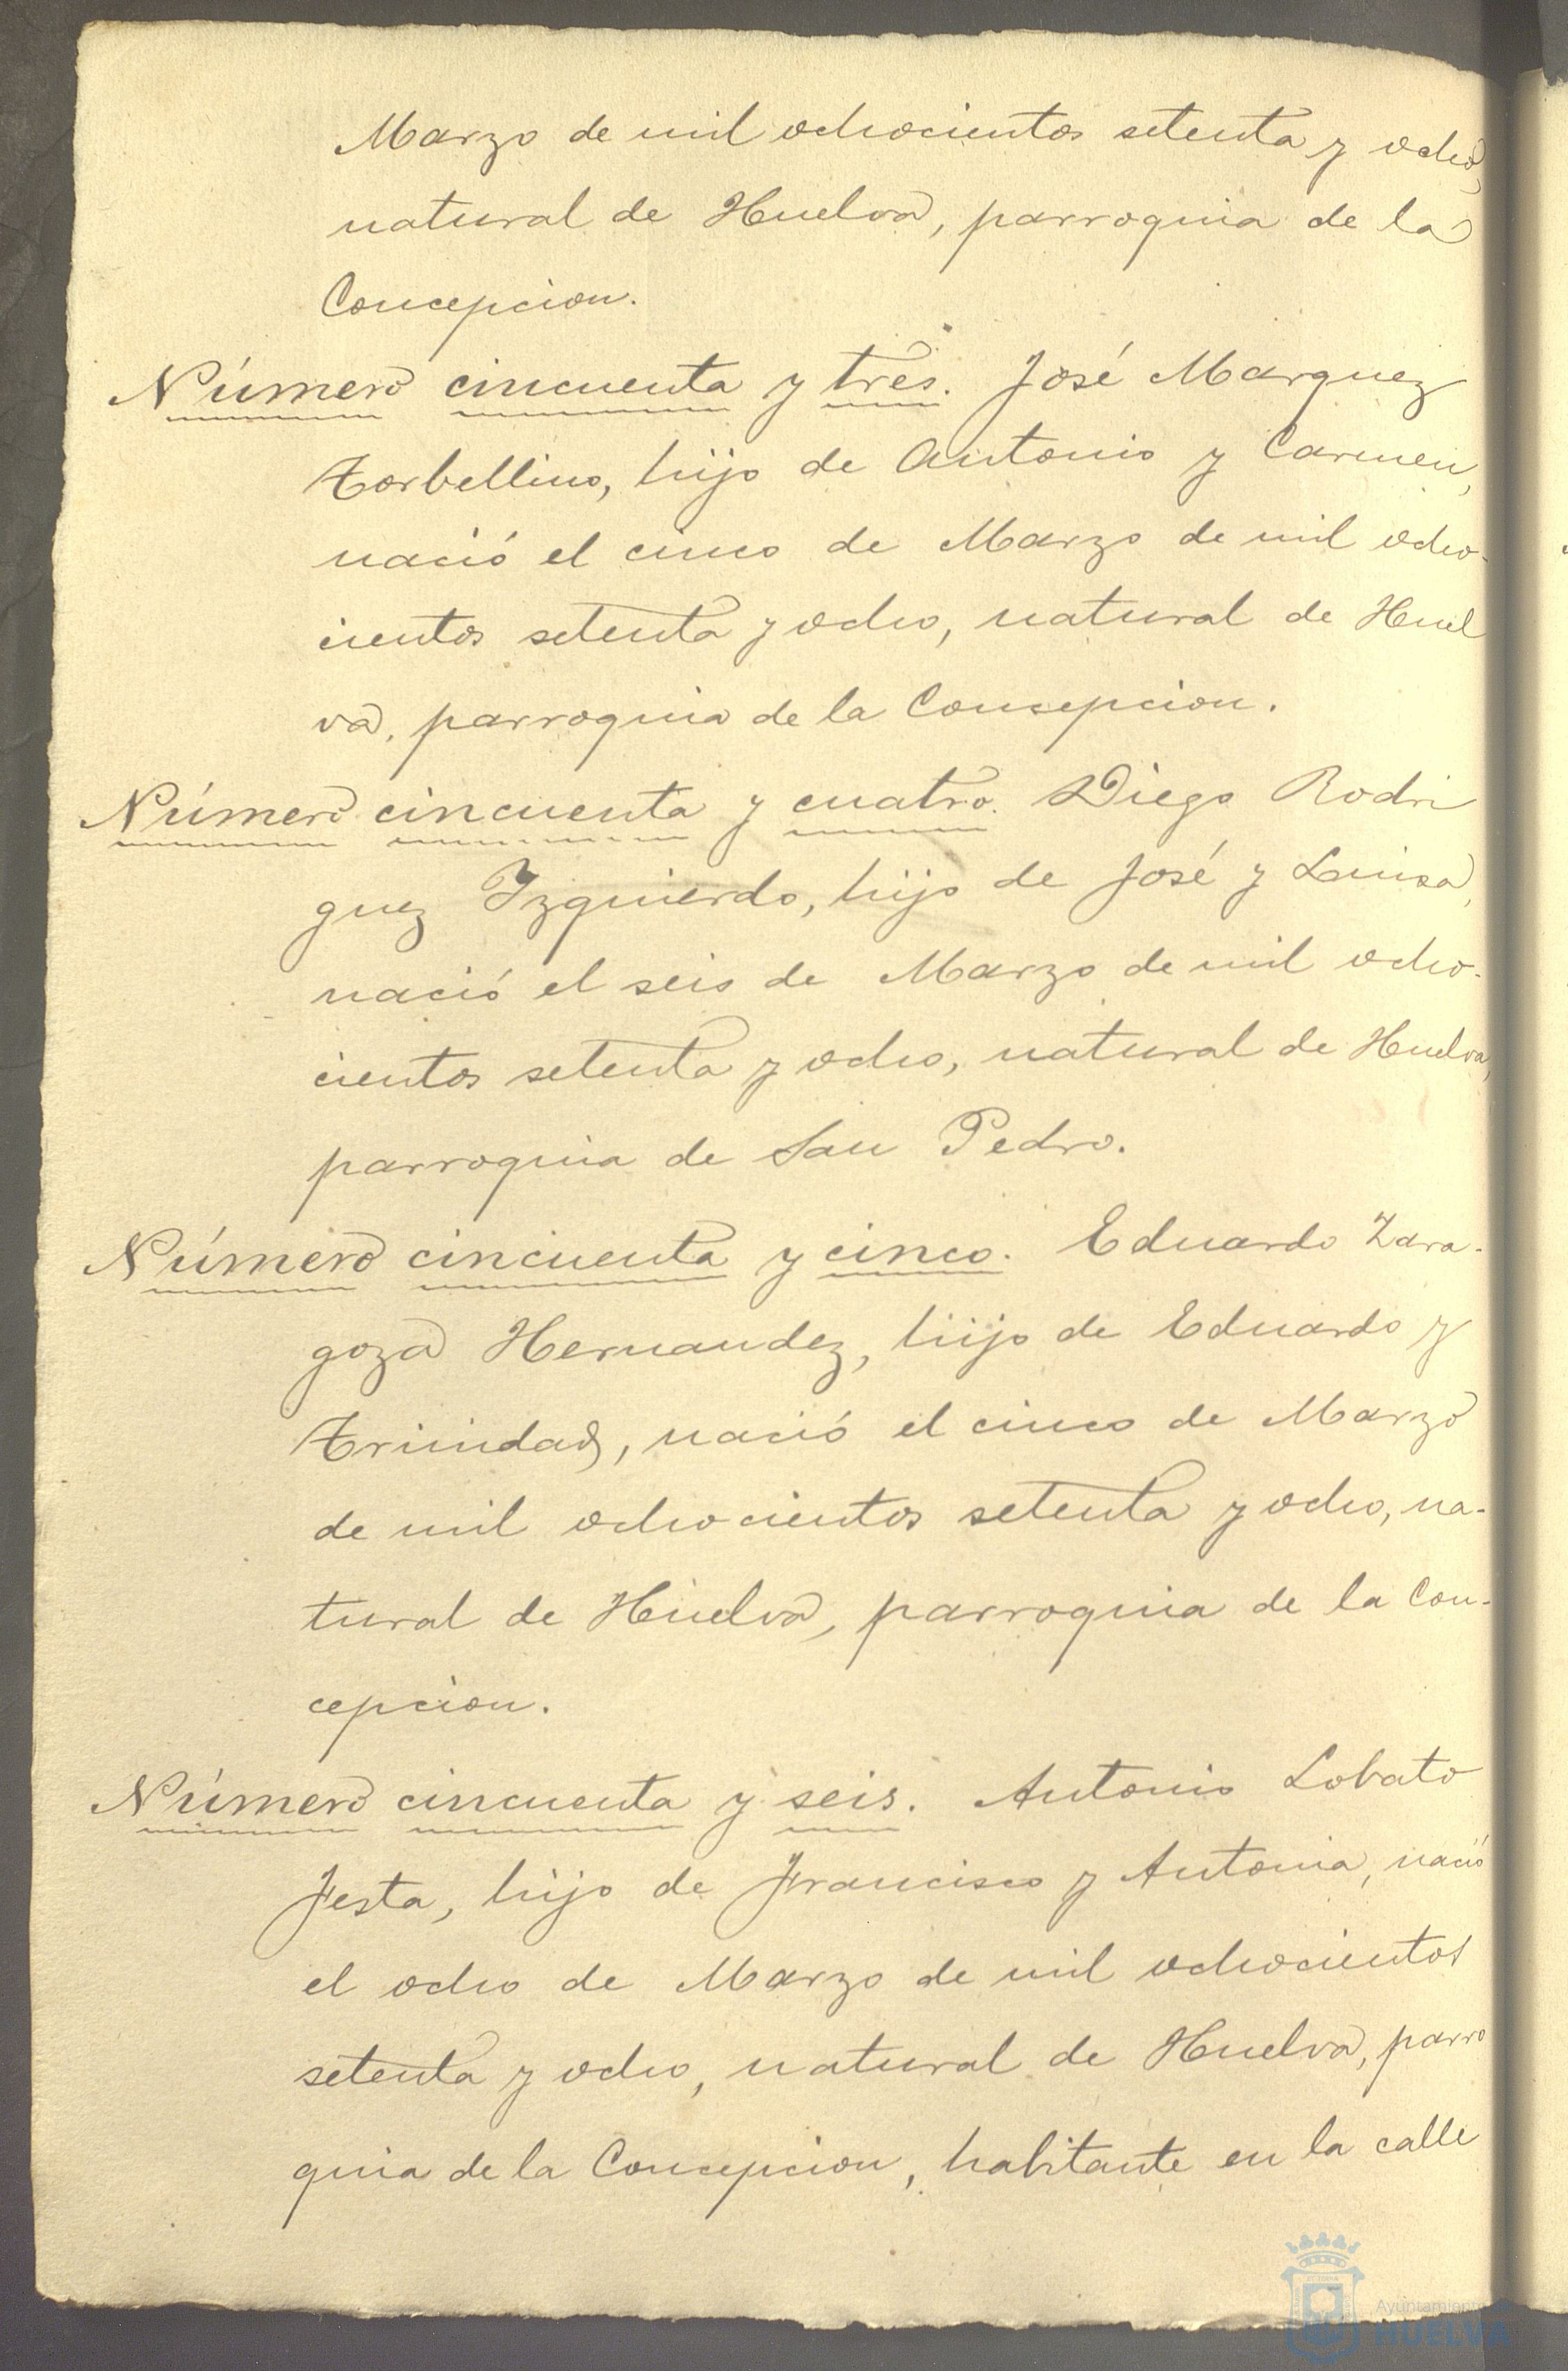 Marzo de mil ochocientos setenta y ocho,
natural de Huelva, parroquia de la
Concepcion.
Número cincuenta y tres. José Marquez
Torbellino, hijo de Antonio y Carmen,
nació el cinco de Marzo de mil ocho-
cientos setenta y ocho, natural de Huel
va, parroquia de la Concepcion.
Número cincuenta y cuatro. Diego Rodri
guez Izquierdo, hijo de José y Luisa,
nació el seis de Marzo de mil ocho-
cientos setenta y ocho, natural de Huelva,
parroquia de San Pedro.
Número cincuenta y cinco. Eduardo Zara-
goza Hernandez, hijo de Eduardo y
Trinidad, nació el cinco de Marzo
de mil ochocientos setenta y ocho, na-
tural de Huelva, parroquia de la Con-
cepcion.
Número cincuenta y seis. Antonio Lobato
Festa, hijo de Francisco y Antonia, nació
el ocho de Marzo de mil ochocientos
setenta y ocho, natural de Huelva, parro
quia de la Concepcion, habitante en la calle
Ayuntamiento
HUELVA